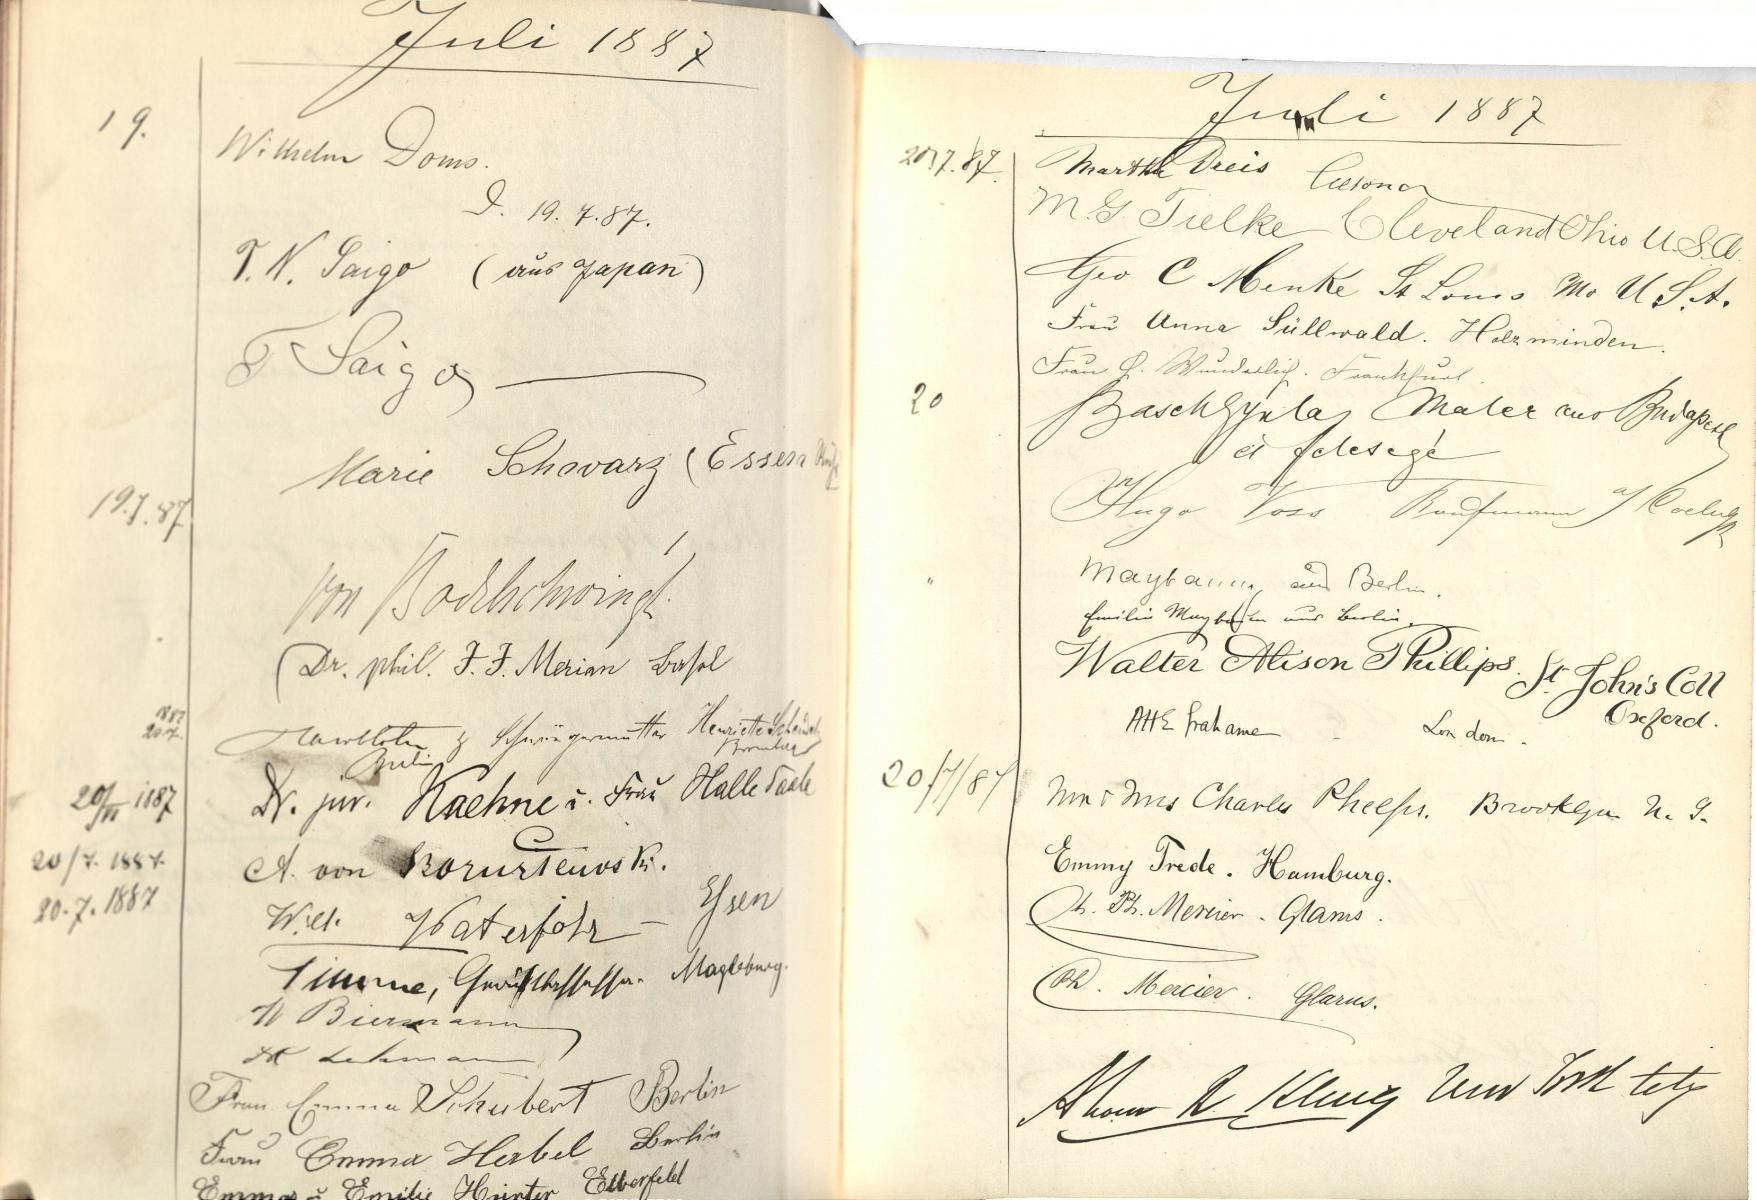 Juli 1887
19.
Wilhelm Doms.
D. 19.7.87.
T. N. Saigo (aus Japan)
T Saigo
Marie Schwarz (Essen
19.7.87
von Bodelschwingh.
(Dr. phil. F. F. Merian Basel
1887
20.7.
Schwiegermutter Henriette
Berlin
20/VII 1887 Dr. jur. Kaehne u. Frau Halle Saale
20/7. 1887. A. von
20.7.1887 Wilh. Waterfohr – Essen
Timme, Magdeburg.
W Biermann
Lehmann
Frau Emma Schubert Berlin
Frau Emma Herbel Berlin
Emma u Emilie Hünter Elberfeld
Juli 1887
20.7.87. Martha Dreis
M. G. Tielke Cleveland Ohio U.S.A.
Geo C Menke St Louis Mo U.S.A.
Frau Anna Süllwald. Holzminden.
Frau Wunderlich. Frankfurt.
20 Basch Gyula, Maler aus Budapest
és felesége
Hugo Voss Kaufmann
" Maybaum aus Berlin.
Emilie Maybaum aus Berlin.
Walter Alison Phillips. St. John's Coll
Oxford.
AHE Grahame London.
20/7/87 Mr & Mrs Charles Phelps. Brooklyn N. Y.
Emmy Trede. Hamburg.
Ch. Ph. Mercier. Glarus.
Ph. Mercier. Glarus.
New York City